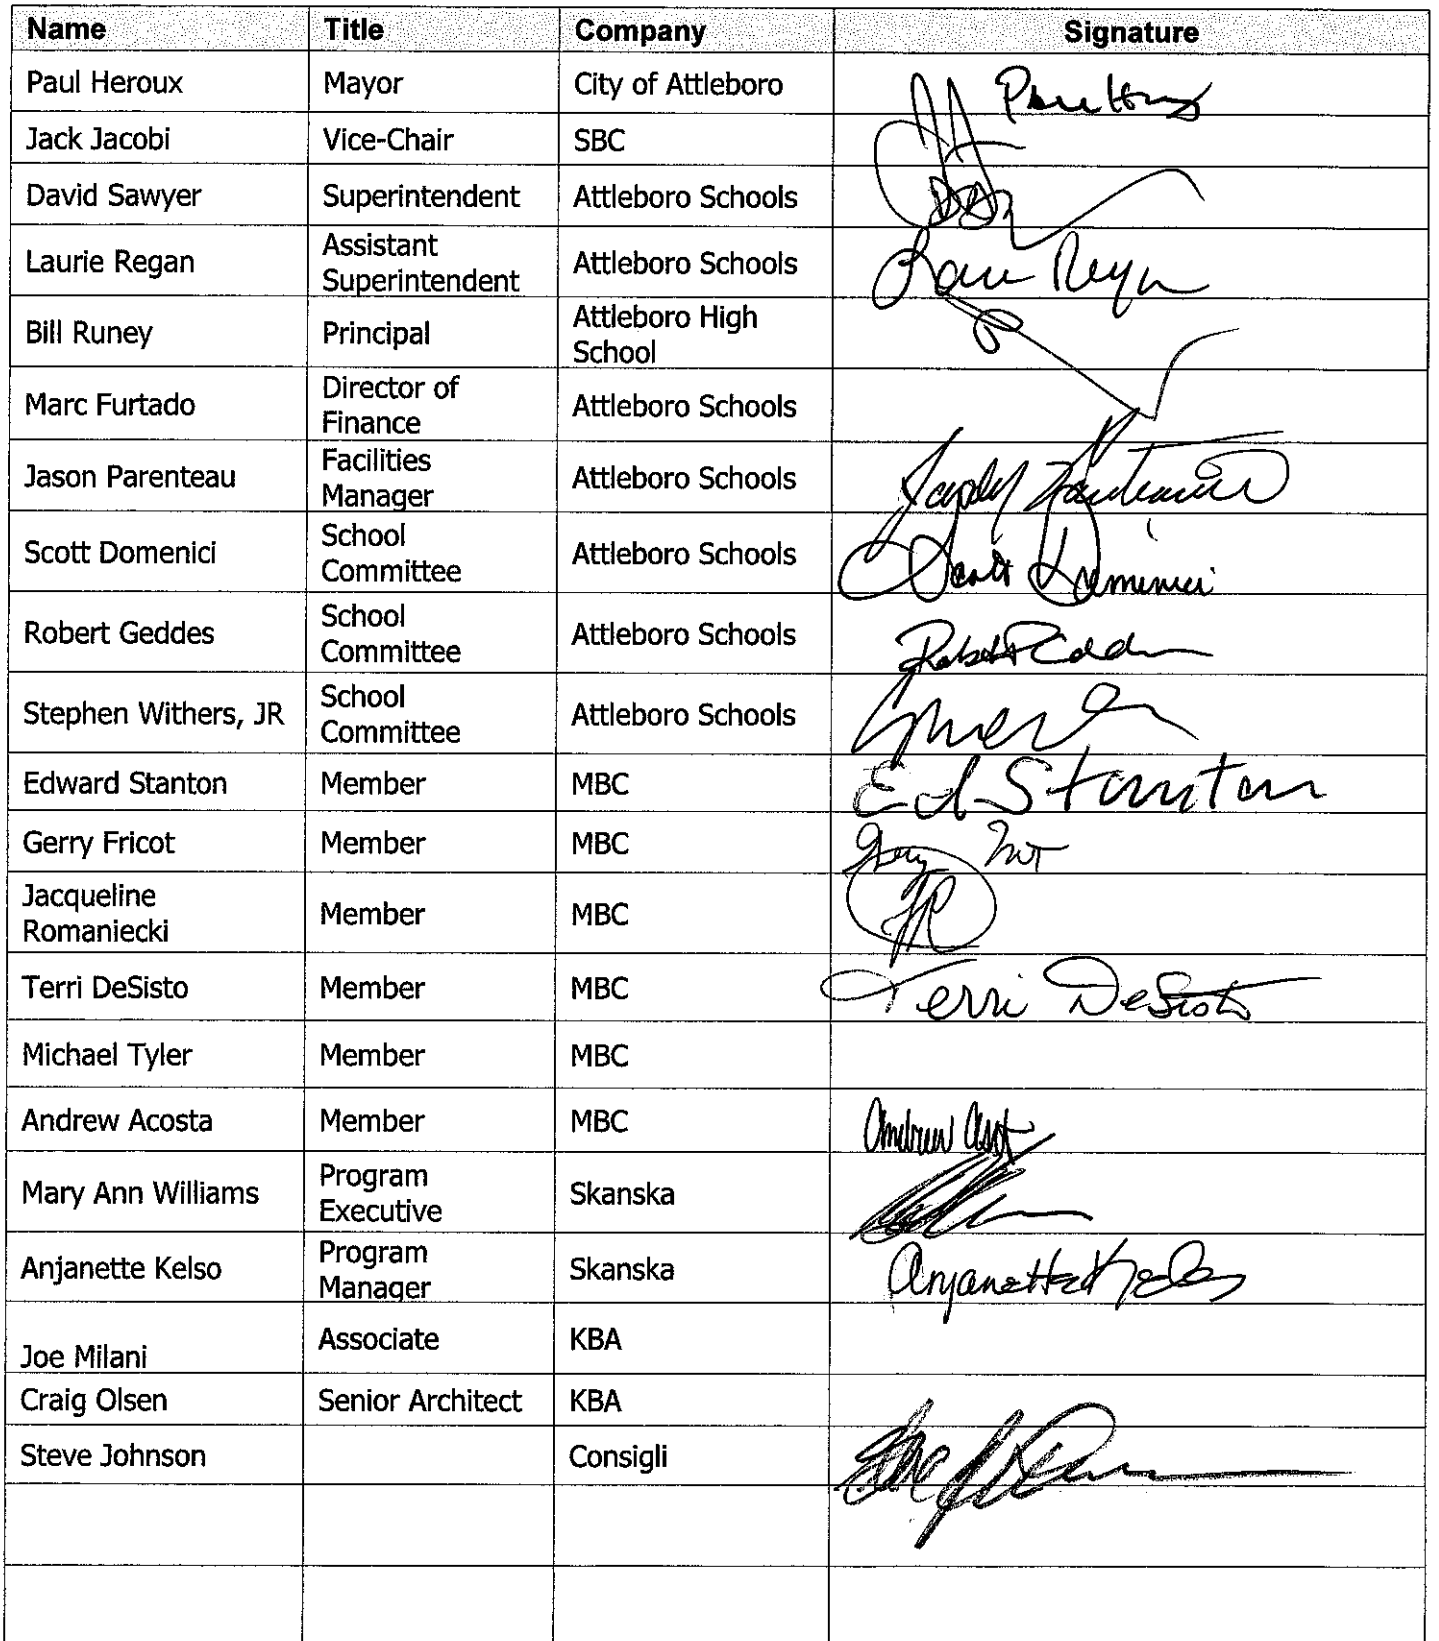 Name Title Company Signature
Paul Heroux Mayor City of Attleboro
Jack Jacobi Vice-Chair SBC
David Sawyer Superintendent Attleboro Schools
Laurie Regan Assistant Superintendent Attleboro Schools
Bill Runey Principal Attleboro High School
Marc Furtado Director of Finance Attleboro Schools
Jason Parenteau Facilities Manager Attleboro Schools
Scott Domenici School Committee Attleboro Schools Scott Domenici
Robert Geddes School Committee Attleboro Schools
Stephen Withers, JR School Committee Attleboro Schools
Edward Stanton Member MBC Ed Stanton
Gerry Fricot Member MBC
Jacqueline Romaniecki Member MBC JR
Terri DeSisto Member MBC Terri DeSisto
Michael Tyler Member MBC
Andrew Acosta Member MBC Andrew
Mary Ann Williams Program Executive Skanska
Anjanette Kelso Program Manager Skanska Anjanette Kelso
Joe Milani Associate KBA
Craig Olsen Senior Architect KBA
Steve Johnson Consigli